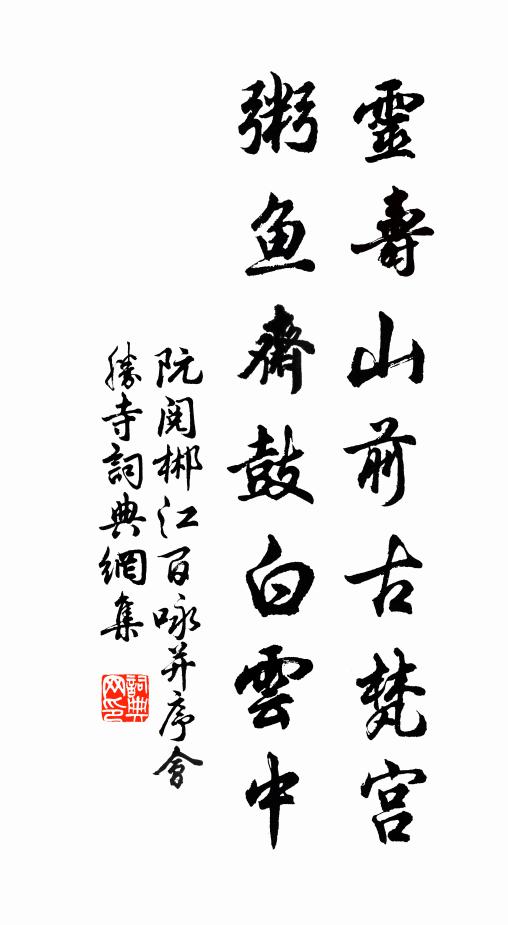 靈壽山前古梵宮
粥鱼齋鼓白雲中
阮閱郴江百咏并序會
勝寺詞典網集
詞典网印